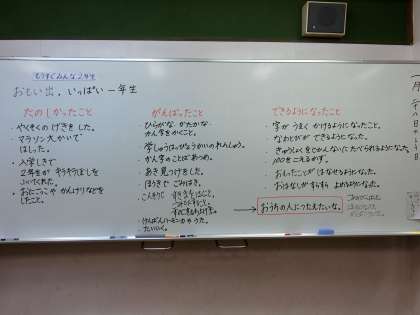 もうすぐみんな2年生
おもい出、いっぱい一年生
たのしかったこと
・やくそくのげきをした。
・マラソン大かいで
はしった。
・入学しきで
2年生がキラキラぼしを
ふいてくれた。
・おにごっこやかんけりなどを
したこと。
がんばったこと
ひらがな かたかな
かん字をかくこと。
・学しゅうはっぴょうかいのれんしゅう。
・かん字のことばあつめ。
・あき見つけをした。
・ほうきでごみはき。
・けんばんハーモニカやうた。
・たいいく。
できるようになったこと
・字がうまくかけるようになった。
・なわとびができるようになった。
・きゅうしょくをじかんないにたべられるようになった。
・100をこえるかず。
・おもったことがはなせるようになった。
・おはなしがすらすらよめるようになった。
→ おうちの人につたえたいな。